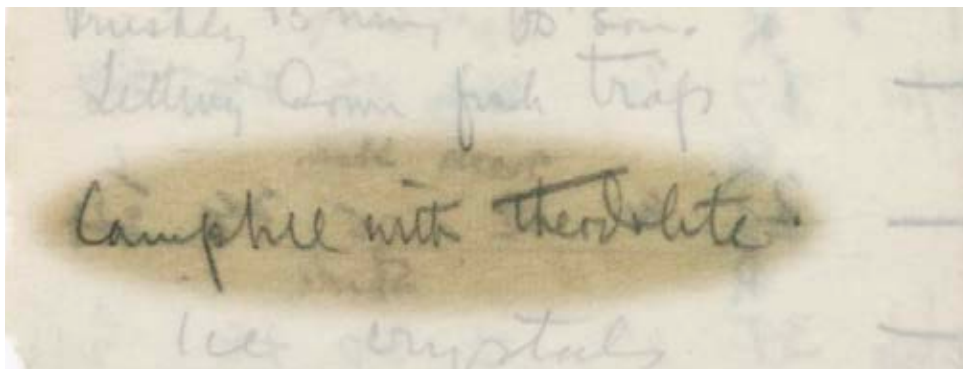 Priestley
Letting down fish trap
Camphell with Theodolite.
Ice crystals